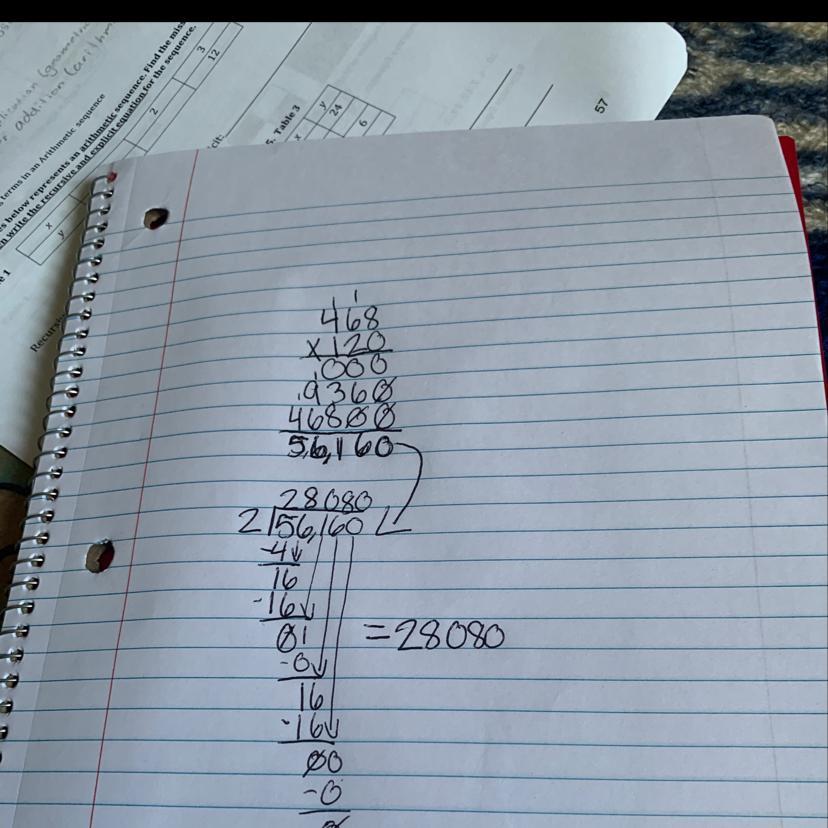 lication (geometric
addition (arithm
terms in an Arithmetic sequence
s below represents an arithmetic sequence. Find the miss
n write the recursive and explicit equation for the sequence.
x
y
2
3
12
e 1
Recursi
cit:
. Table 3
x
y
24
6
57
1
468
x120
000
9360
46800
56,160
28080
2 56,160
-4
16
-16
01
-0
16
-16
00
-0
= 28080